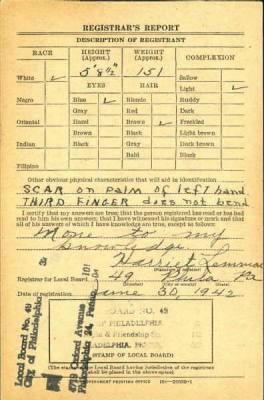 REGISTRAR'S REPORT
DESCRIPTION OF REGISTRANT
RACE HEIGHT (Approx.) WEIGHT (Approx.) COMPLEXION
5' 8½" 151
White ✓ Sallow
EYES HAIR Light ✓
Negro Blue ✓ Blonde Ruddy
Gray Red Dark
Oriental Hazel Brown ✓ Freckled
Brown Black Light brown
Indian Black Gray Dark brown
Bald Black
Filipino
Other obvious physical characteristics that will aid in identification
SCAR on palm of left hand
THIRD FINGER does not bend
I certify that my answers are true; that the person registered has read or has had
read to him his own answers; that I have witnessed his signature or mark and that
all of his answers of which I have knowledge are true, except as follows:
None to my
knowledge
Harriet
Registrar for Local Board 49 Phila Pa
Date of registration June 30, 1942
Local Board No. 49
City of Philadelphia
Avenue
Philadelphia 24, Penna.
BOARD NO. 49
OF PHILADELPHIA
& Friendship
PHILADELPHIA,
(STAMP OF LOCAL BOARD)
(The stamp of the Local Board having jurisdiction of the registrant
shall be placed in the above space)
GOVERNMENT PRINTING